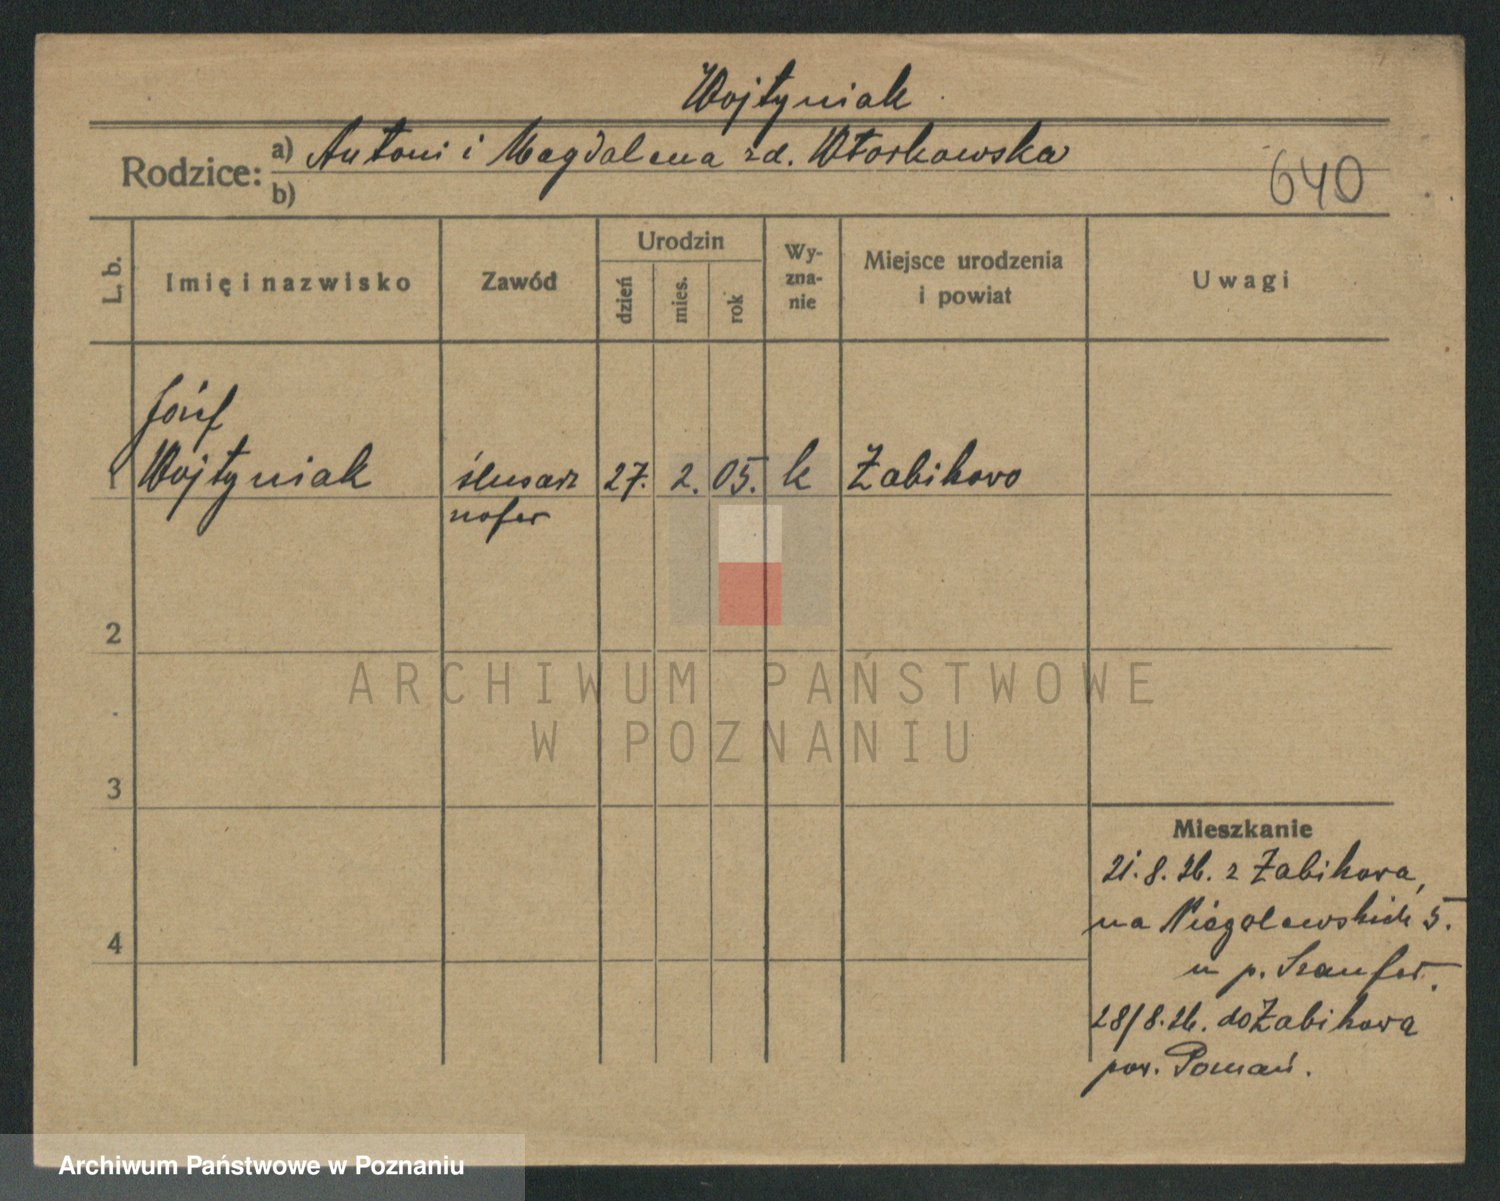 Wojtyniak
Rodzice: a) Antoni i Magdalena zd. Wtorkowska
b)
640
L. b.
Imię i nazwisko
Zawód
Urodzin
dzień
mies.
rok
Wy-
zna-
nie
Miejsce urodzenia
i powiat
Uwagi
Józef
1 Wojtyniak ślusarz 27. 2. 05. k Żabikowo
szofer
2
3
4
Mieszkanie
21.8.26. z Żabikowa,
na Niegolewskich 5.
u p. Szaufer.
28/8.26. do Żabikowa
pow. Poznań.
ARCHIWUM PAŃSTWOWE
W POZNANIU
Archiwum Państwowe w Poznaniu